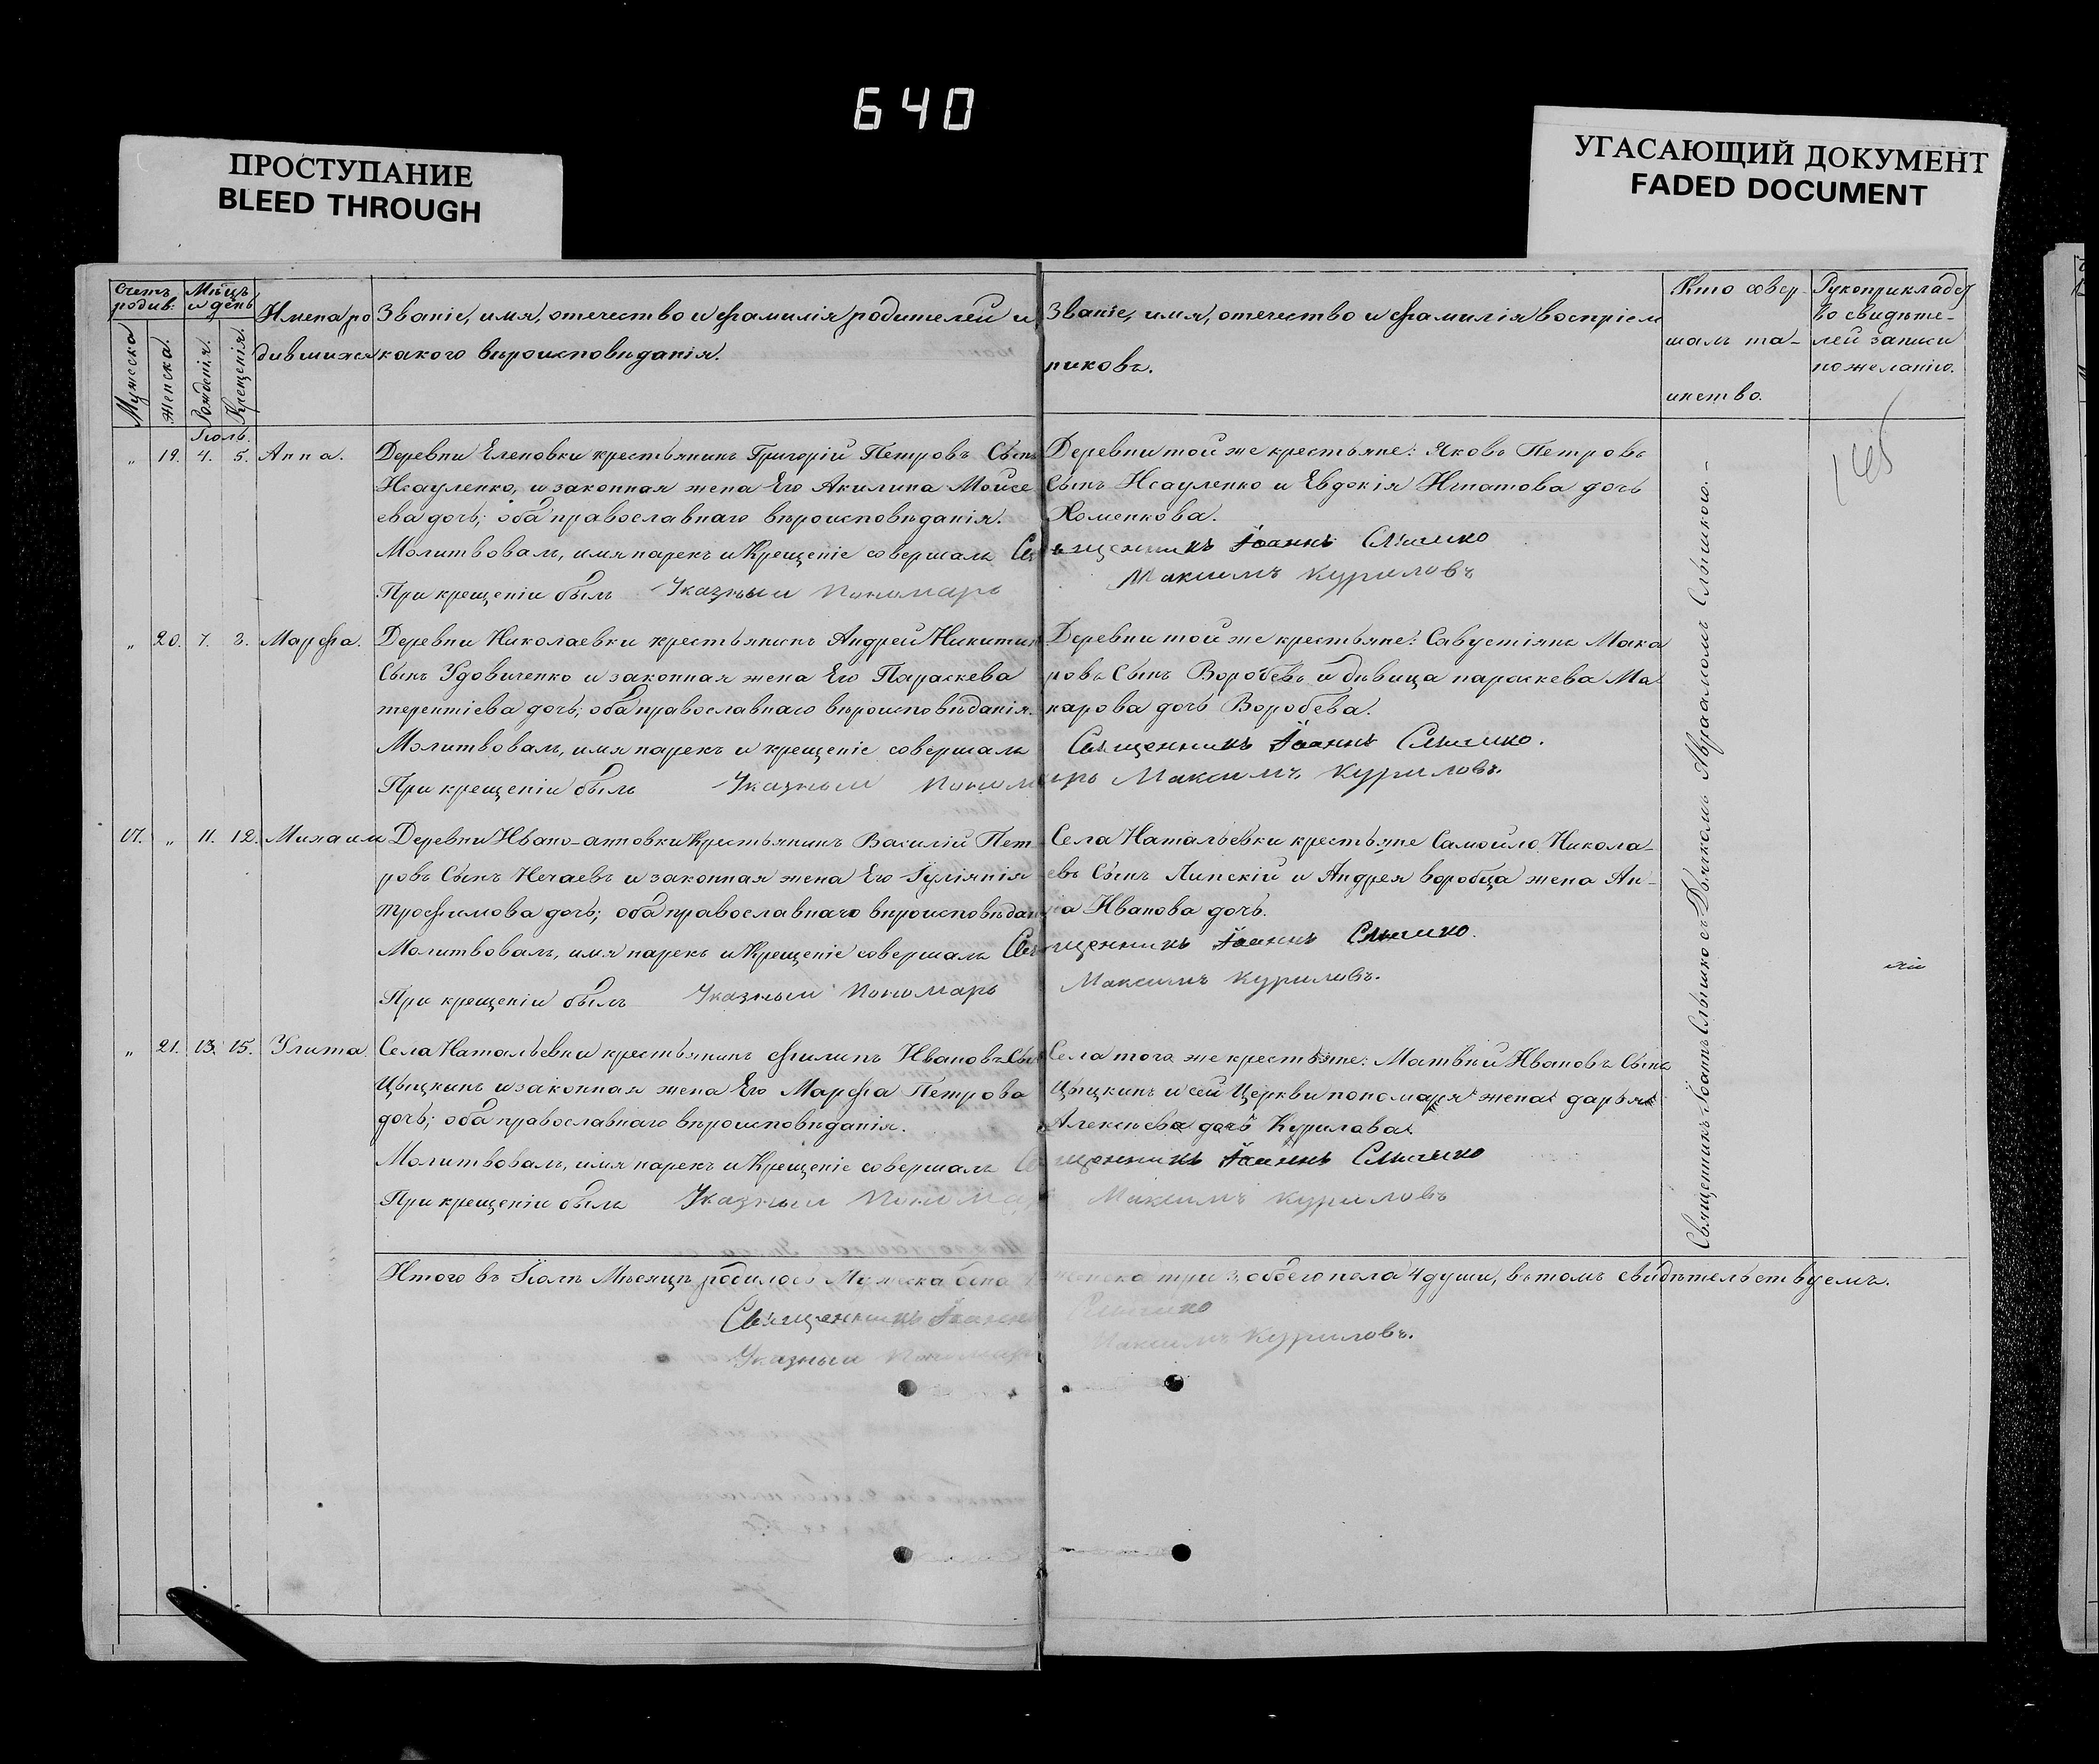 640
ПРОСТУПАНИЕ
BLEED THROUGH
УГАСАЮЩИЙ ДОКУМЕНТ
FADED DOCUMENT
Счетъ родив:
Мужеска
Женска.
Мѣцъ и день
Рожденія.
Крещенія.
Имена ро
дившихся
Званіе, имя, отечество и фамилія родителей и
какого вѣроисповѣданія.
Званіе, имя, отечество и фамилія воспріем
никовъ.
Кто совер
шалъ та-
инство.
Рукоприклад
во свидѣте-
лей записи
по желанію.
Іюль.
" 19. 4. 5. Анна. Деревни Еленовки крестьянинъ Григорій Петровъ Сынъ
Исауленко, и законная жена Его Акилина Моисе
ева дочь; оба православнаго вѣроисповѣданія.
Молитвовалъ, имя нарекъ и Крещеніе совершалъ
При крещеніи былъ Указный Пономарь
Деревни той же крестьяне: Яковъ Петровъ
Сынъ Исауленко и Евдокія Игнатова дочь
Хоменкова.
Священникъ Іоаннъ Слышко
Максимъ Куриловъ
" 20. 7. 8. Марфа. Деревни Николаевки крестьянинъ Андрей Никитинъ
Сынъ Удовиченко и законная жена Его Параскева
терентіева дочь; оба православнаго вѣроисповѣданія.
Молитвовалъ, имя нарекъ и крещеніе совершалъ
При крещеніи былъ Указный Пономарь
Деревни той же крестьяне: Савустіянъ Мака
ровъ Сынъ Воробевъ и дѣвица параскева Ма
карова дочь Воробева.
Священникъ Іоаннъ Слышко.
Максимъ Куриловъ.
17. " 11. 12. Михаилъ Деревни Ивано-анновки Крестьянинъ Василій Пет
ровъ Сынъ Нечаевъ и законная жена Его Іуліянія
трофимова дочь; оба православнаго вѣроисповѣдан
Молитвовалъ, имя нарекъ и Крещеніе совершалъ
При крещеніи былъ Указный Пономарь
Села Натальевки крестьяне Самойло Никола-
евъ Сынъ Липскій и Андрея воробца жена Ан-
на Иванова дочь.
Священникъ Іоаннъ Слышко.
Максимъ Куриловъ.
" 21. 13. 15. Улита Села Натальевки крестьянинъ филипъ Ивановъ Сынъ
Цыцкинъ и законная жена Его Марфа Петрова
дочь; оба православнаго вѣроисповѣданія.
Молитвовалъ, имя нарекъ и Крещеніе совершалъ
При крещеніи былъ Указный Пономарь
Села того же крестьяне: Матвѣй Ивановъ Сынъ
Цыцкинъ и сей Церкви пономаря жена дарья
Алексѣева дочь Курилова.
Священникъ Іоаннъ Слышко
Максимъ Куриловъ
Священникъ Іоаннъ Слышко съ Дьякомъ Авраамомъ Слышкою.
Итого въ Іюлѣ Мѣсяцѣ родилось Мужска женска три 3, обоего пола 4 души, въ томъ свидѣтельствуемъ.
Священникъ Іоаннъ Слышко
Указный Пономарь Максимъ Куриловъ.